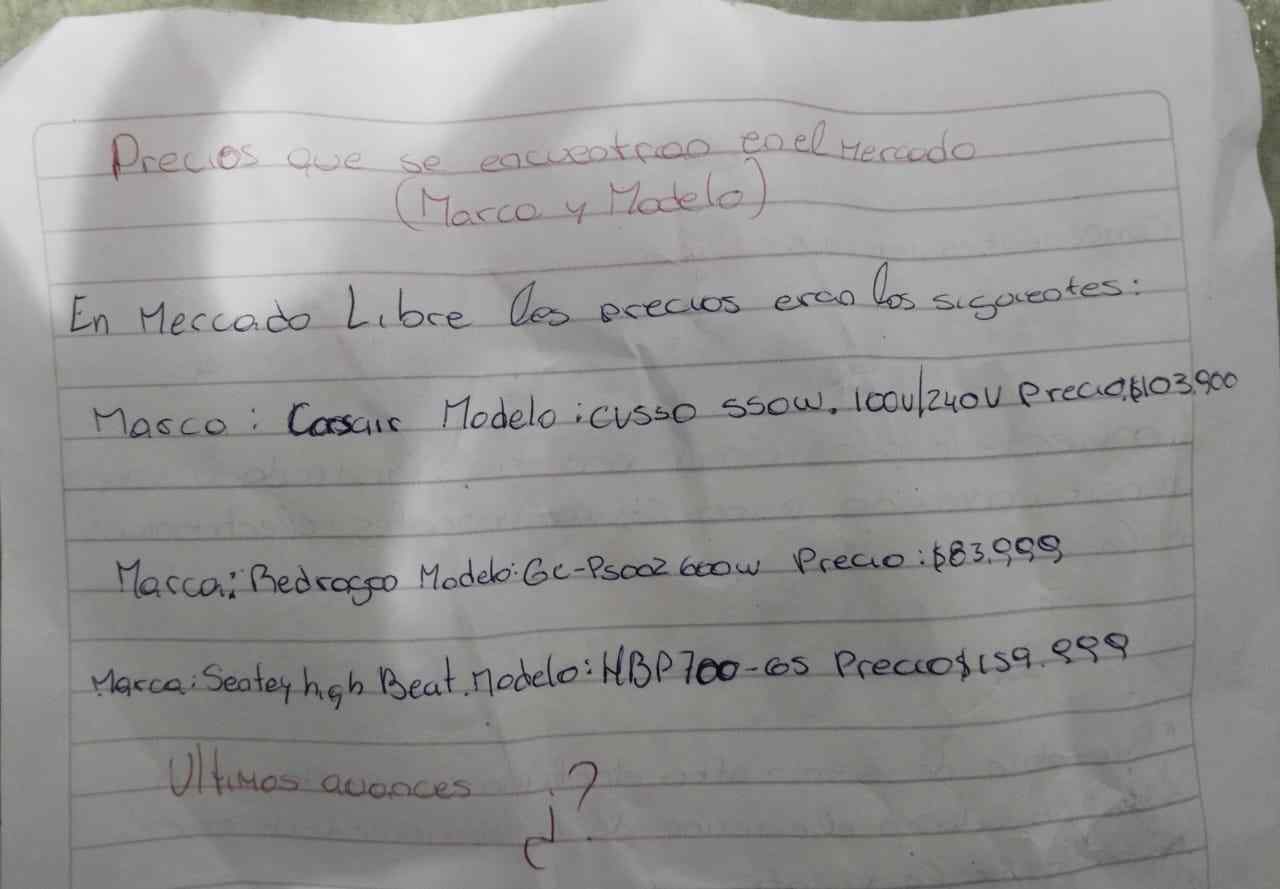 Precios que se encuentran en el Mercado
(Marca y Modelo)
En Mercado Libre los precios eran los siguientes:
Marca: Corsair Modelo: CV550 550W. 100V/240V Precio: $103,900
Marca: Redragon Modelo: GC-PS002 600W Precio: $83.999
Marca: Sentey high Beat. Modelo: HBP700-GS Precio $159.999
Ultimos avances ¿?